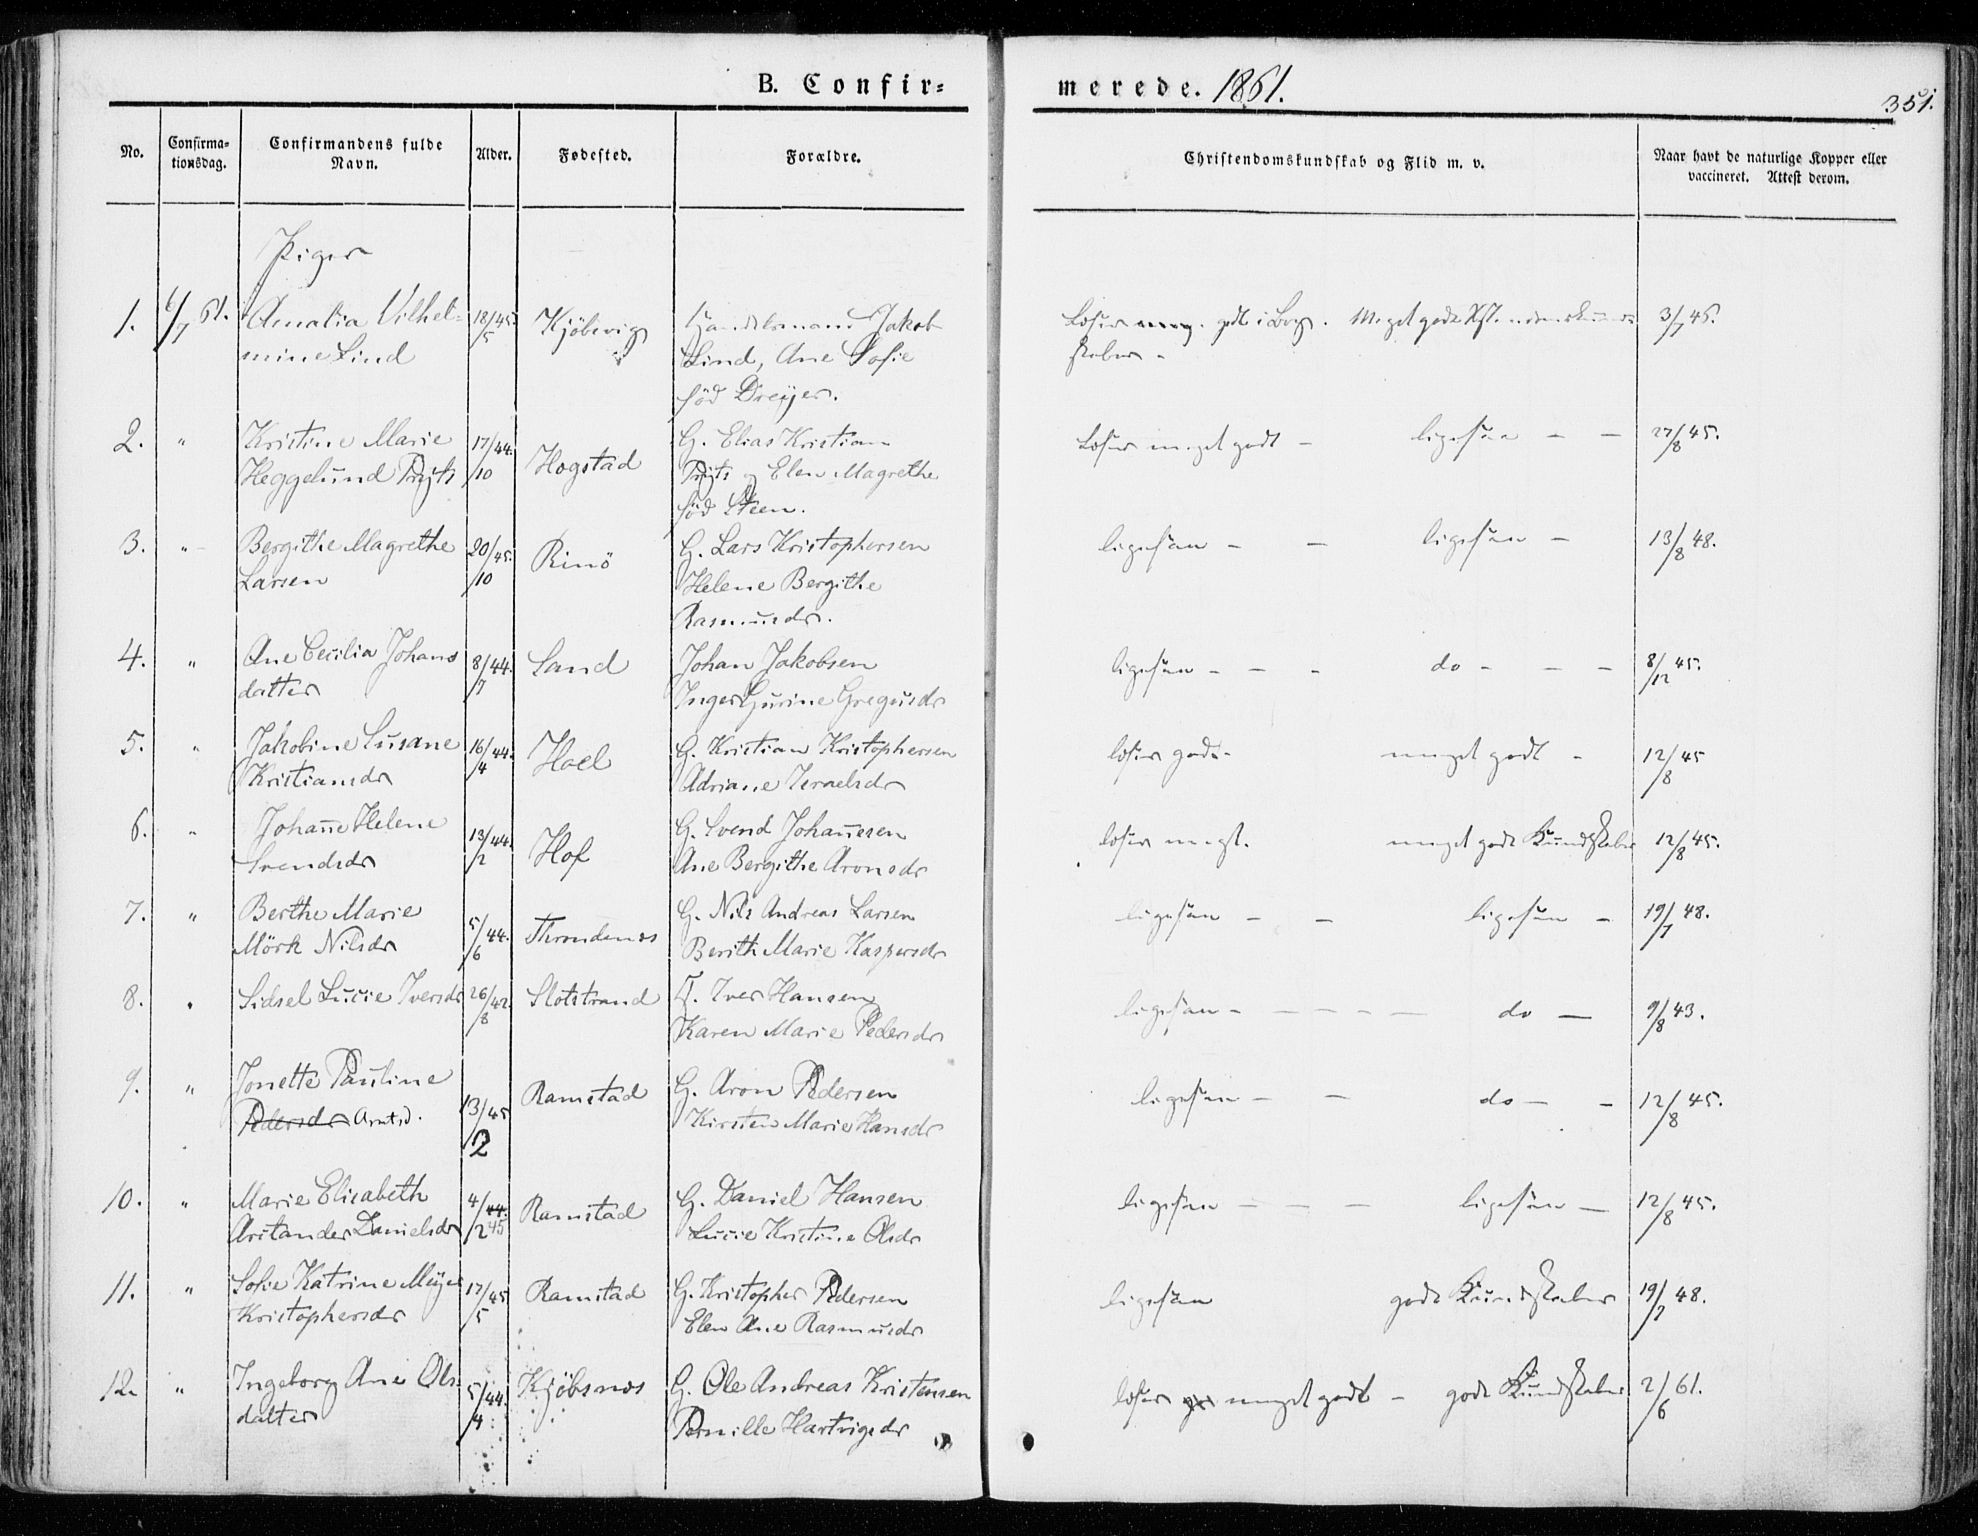 B. Confir=
merede. 1861.
351.
No.
Confirma=
tionsdag.
Confirmandens fulde
Navn.
Alder.
Fødested.
Forældre.
Christendomskundskab og Flid m. v.
Naar havt de naturlige Kopper eller
vaccineret. Attest derom.
Piger
1. 6/7 61. Amalia Vilhel= 18/5 45. Kjöbsvig Handelsmand Jakob Læser meg. godt i Bog. Meget gode Kst.ndomskund= 3/7 46.
mine Lind Lind, Ane Sofie skaber -
föd Dreyer.
2. " Kristine Marie 17/10 44. Hogstad G. Elias Kristian Læser meget godt - ligesaa - - 27/8 45.
Heggelund Prÿts Prÿts og Elen Magrethe
föd Steen.
3. " Bergithe Magrethe 20/10 45. Rinö G. Lars Kristophersen ligesaa - - ligesaa - 13/8 48.
Larsen Helene Bergithe
Rasmusdr.
4. " Ane Cecilia Johans 8/7 44. Sand Johan Jakobsen ligesaa - - - do - - - 8/12 45.
datter Inger Gurine Gregusdr
5. " Jakobine Susane 16/4 44. Hoel G. Kristian Kristophersen læser godt - meget godt - 12/8 45
Kristiansdr Adriane Israelsdr
6. " Johanne Helene 13/2 44. Hof G. Svend Johannesen læser megt. meget gode Kundskaber 12/8 45.
Svendsdr Ane Bergithe Aronsdr
7. " Berthe Marie 5/6 44. Throndenes G. Nils Andreas Larsen ligesaa - - ligesaa - 19/7 48.
Mörk Nilsdr Berith Marie Kaspersdr
8. " Sidsel Lucie Iversdr 26/8 42. Slotstrand I. Iver Hansen ligesaa - - - - - do - 9/8 43.
Karen Marie Pedersdr
9. " Jonette Pauline 13/2 45 Ramstad G. Aron Pedersen ligesaa - - do - - 12/8 45.
Pedersdr Arntsd. Kirsten Marie Hansdr
10. " Marie Elisabeth 4/2 44. 45 Ramstad G. Daniel Hansen ligesaa - - - ligesaa - 12/8 45.
Arctander Danielsdr Lucie Kristine Olsdr
11. " Sofie Katrine Meÿer 17/5 45 Ramstad G. Kristopher Pedersen ligesaa gode Kundskaber 19/7 48.
Kristophersdr Elen Ane Rasmusdr
12. " Ingeborg Ane Ols= 5/4 44. Kjöbsnes G. Ole Andreas Kristensen læser go meget godt - gode Kundskaber 2/6 61.
datter Pernille Hartvigsdr